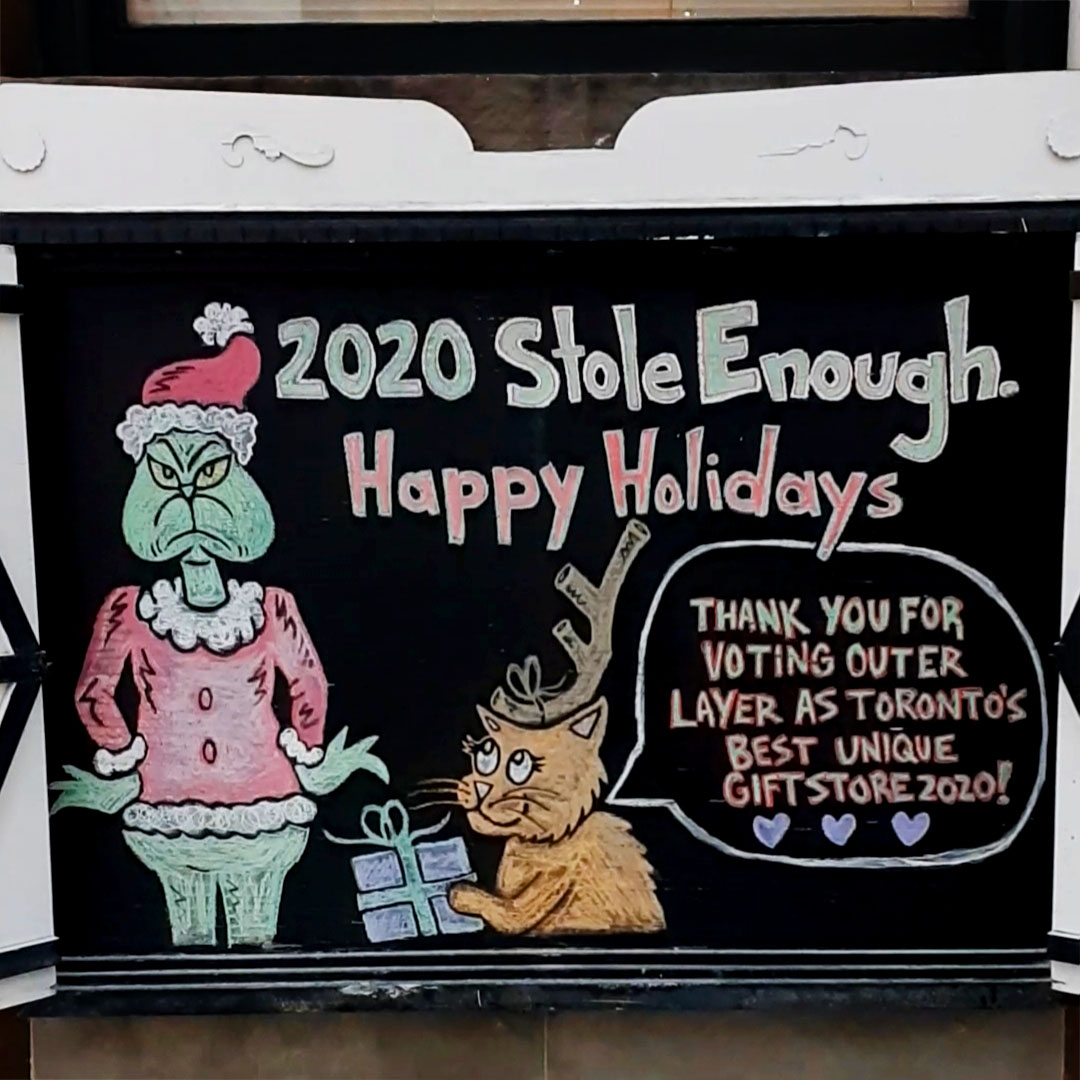 2020 Stole Enough.
Happy Holidays
THANK YOU FOR
VOTING OUTER
LAYER AS TORONTO'S
BEST UNIQUE
GIFTSTORE 2020!